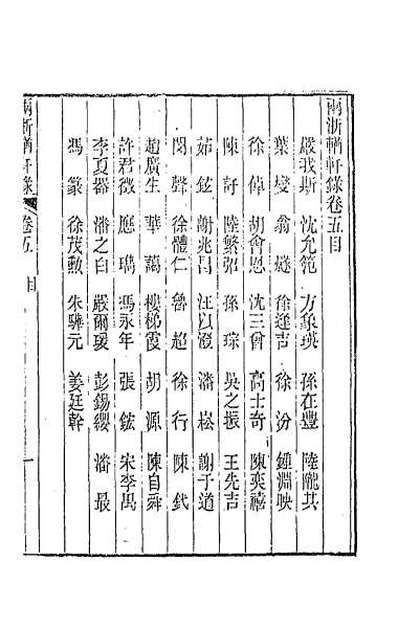 兩浙輶軒錄卷五目
嚴我斯 沈允范 方象瑛 孫在豐 陸隴其
葉燮 翁𤩽 徐逢吉 徐汾 鍾淵映
徐倬 胡會恩 沈三曾 高士奇 陳奕禧
陳訏 陸繁弨 孫琮 吳之振 王先吉
茹鉉 謝兆昌 汪以澄 潘崧 謝于道
閔聲 徐體仁 魯超 徐行 陳釴
趙廣生 華藹 樓梯霞 胡源 陳自舜
許君徵 應瑪 馮永年 張鋐 宋李禺
李夏器 潘之白 嚴爾瑗 彭錫纓 潘最
馮篆 徐茂勳 朱驊元 姜廷幹
兩浙輶軒錄 卷五 目 一